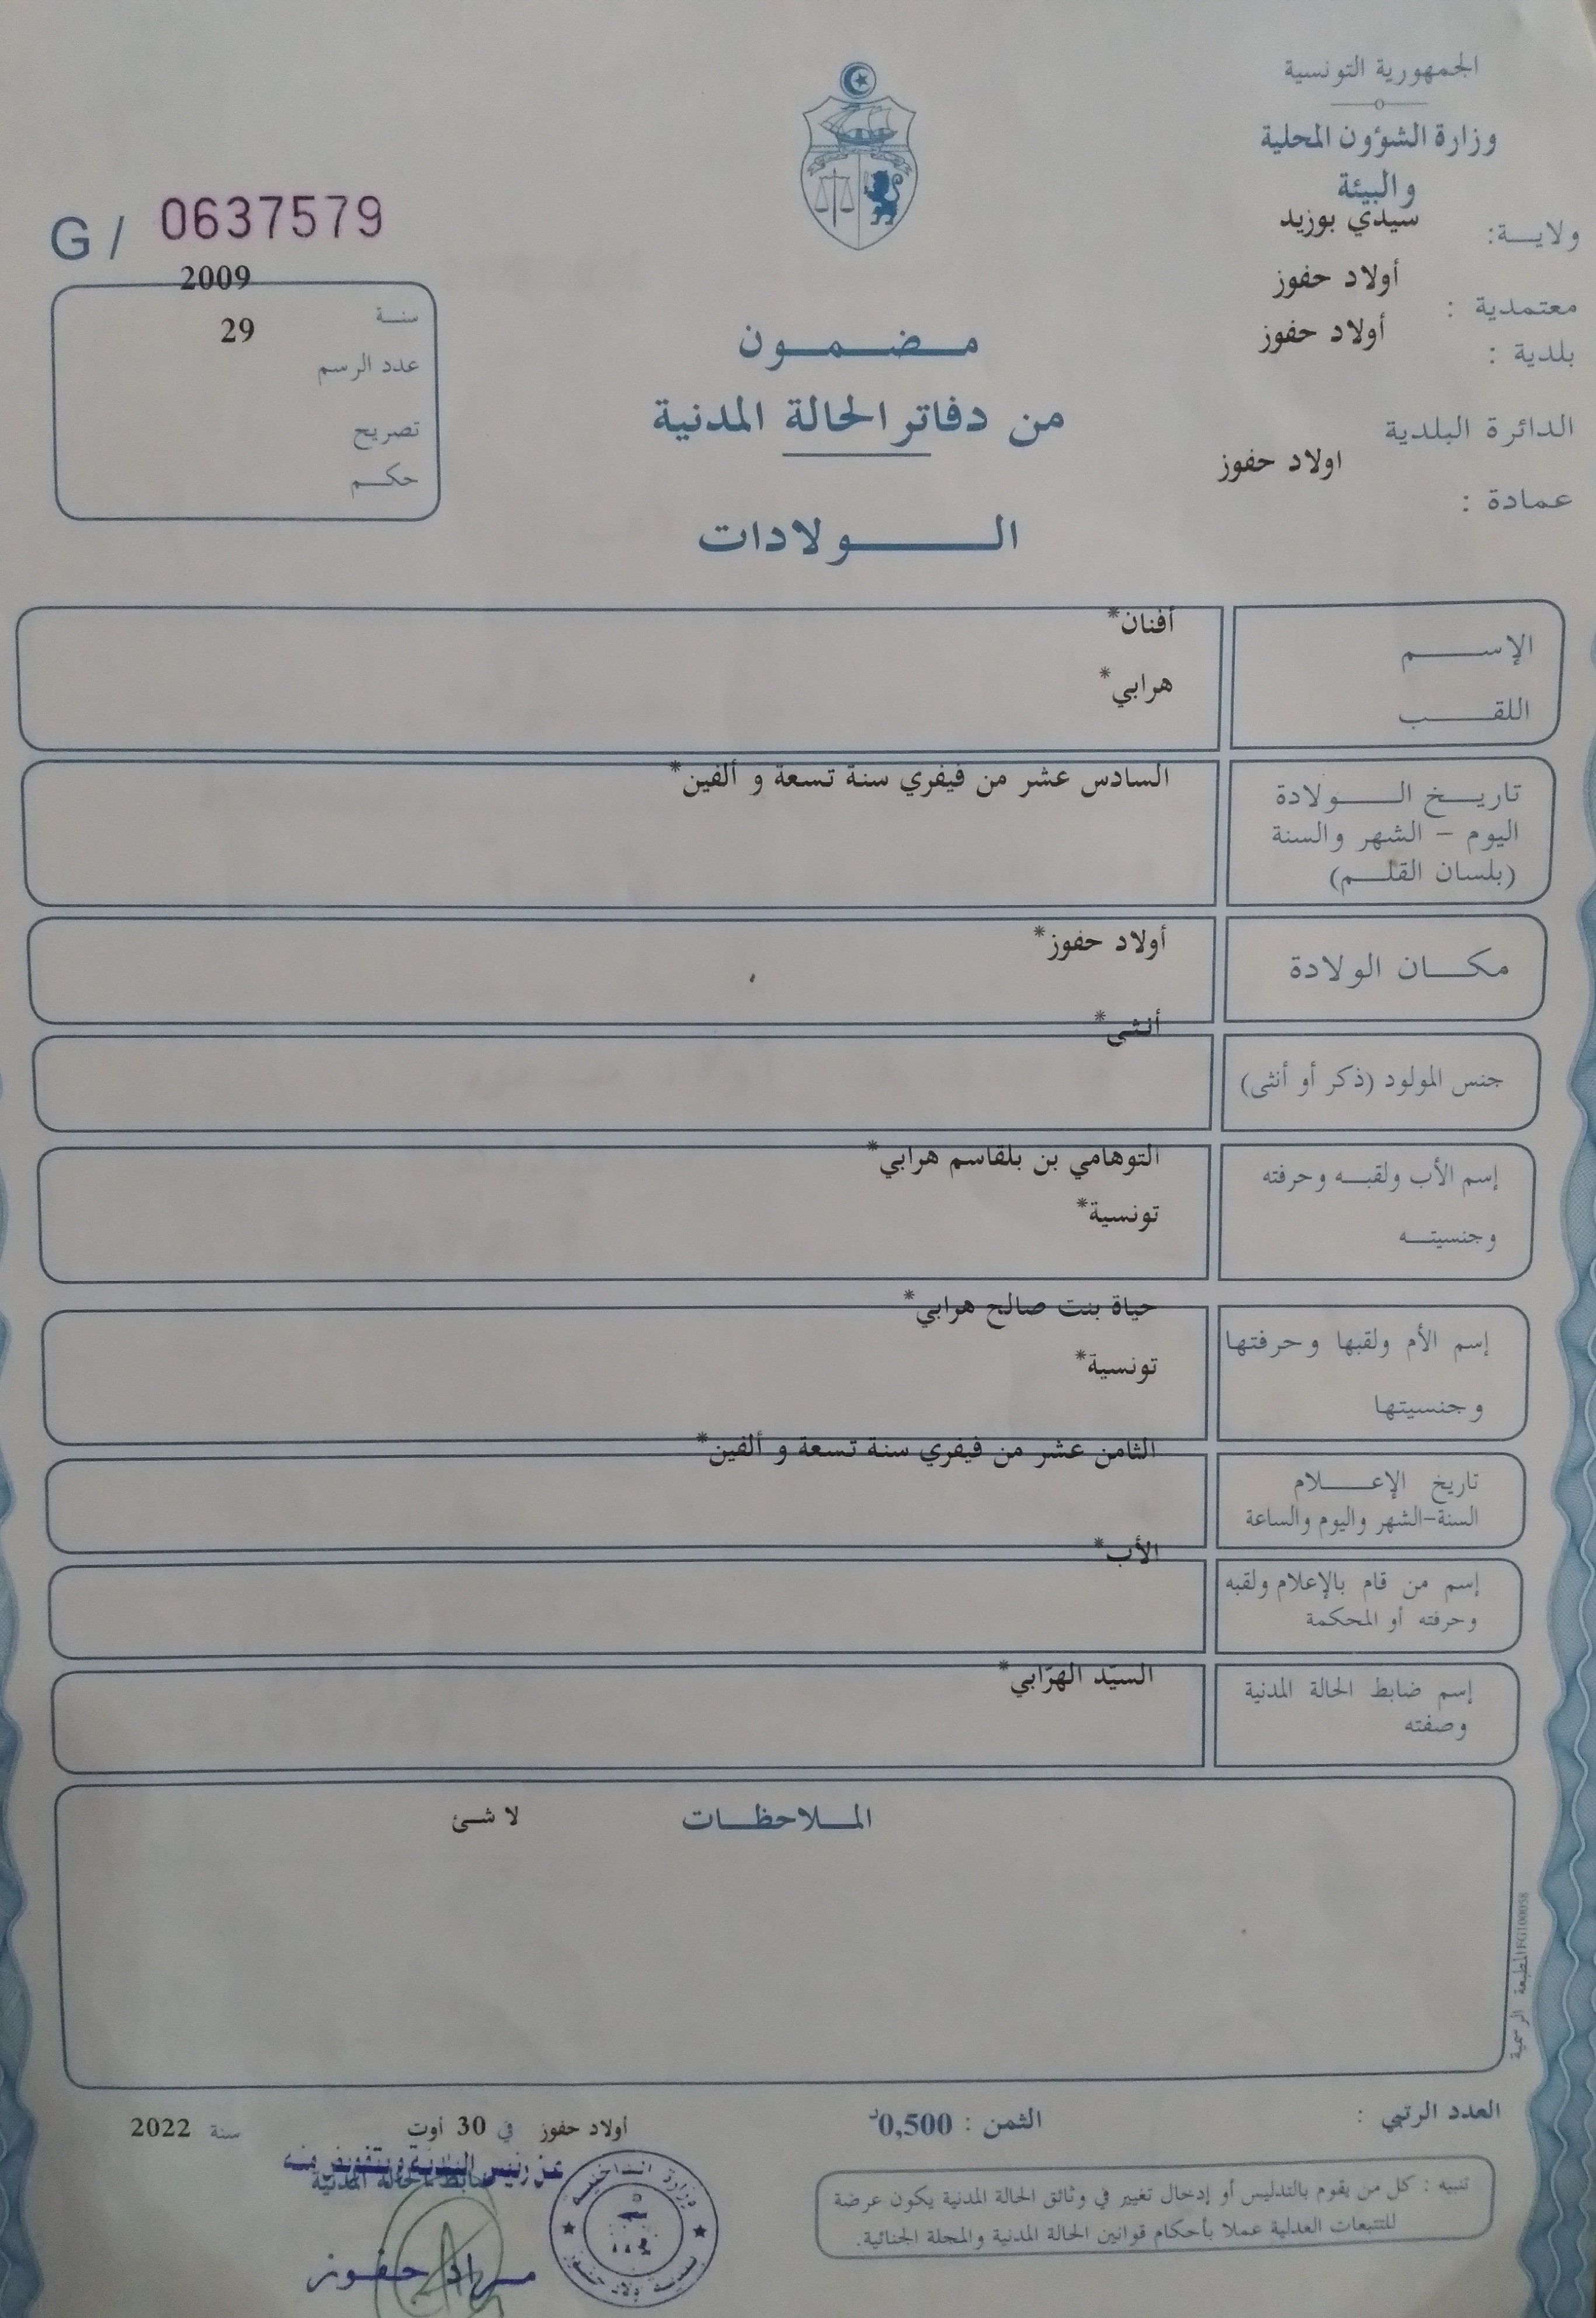 الجمهورية التونسية
وزارة الشؤون المحلية
والبيئة
ولايـــة: سيدي بوزيد
معتمدية : أولاد حفوز
بلدية : أولاد حفوز
الدائرة البلدية
اولاد حفوز
عمادة :
G / 0637579
2009
سنـة
29
عدد الرسم
تصريح
حكـم
مـضـمـون
من دفاتر الحالة المدنية
الــولادات
الإســـم
أفنان*
اللقــب
هرابي*
تاريـخ الــولادة
اليوم – الشهر والسنة
(بلسان القلـم)
السادس عشر من فيفري سنة تسعة و ألفين*
مكـان الولادة
أولاد حفوز*
جنس المولود (ذكر أو أنثى)
أنثى*
إسم الأب ولقبـه وحرفته
وجنسيتـه
التوهامي بن بلقاسم هرابي*
تونسية*
إسم الأم ولقبها وحرفتها
وجنسيتها
حياة بنت صالح هرابي*
تونسية*
تاريخ الإعــلام
السنة-الشهر واليوم والساعة
الثامن عشر من فيفري سنة تسعة و ألفين*
إسم من قام بالإعلام ولقبه
وحرفته أو المحكمة
الأب*
إسم ضابط الحالة المدنية
وصفته
السيّد الهرّابي*
المـلاحظـات
لا شئ
المطبعة الرسمية FG100058
العدد الرتبي :
الثمن : 0,500د
أولاد حفوز في 30 أوت سنة 2022
عن رئيس البلدية وبتفويض منه
ضابط الحالة المدنية
مـراد حفـوز
وزارة الداخلية
بلدية أولاد حفوز
تنبيه : كل من يقوم بالتدليس أو إدخال تغيير في وثائق الحالة المدنية يكون عرضة
للتتبعات العدلية عملا بأحكام قوانين الحالة المدنية والمجلة الجنائية.